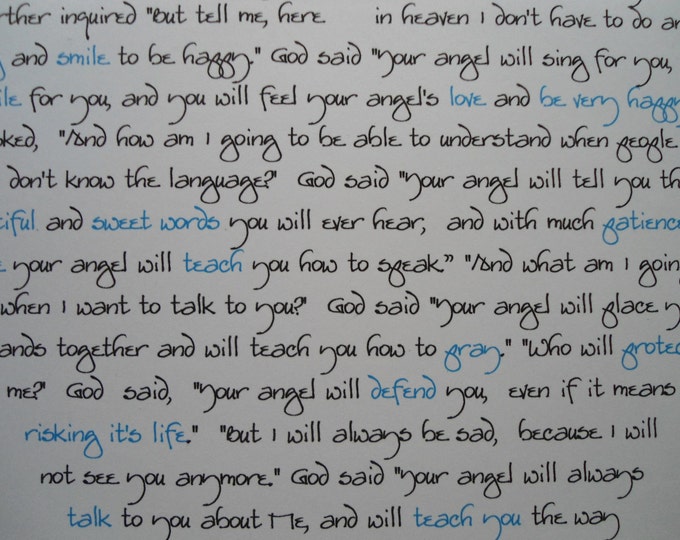 rther inquired "But tell me, here in heaven I don't have to do an
and smile to be happy." God said "Your angel will sing for you,
ile for you, and you will feel your angel's love and be very happy
oked, "And how am I going to be able to understand when people
don't know the language?" God said "Your angel will tell you th
tiful and sweet words you will ever hear, and with much patience
your angel will teach you how to speak." "And what am I going
when I want to talk to you?" God said "Your angel will place y
ands together and will teach you how to pray." "Who will protec
me?" God said, "Your angel will defend you, even if it means
risking it's life." "But I will always be sad, because I will
not see you anymore." God said "Your angel will always
talk to you about Me, and will teach you the way